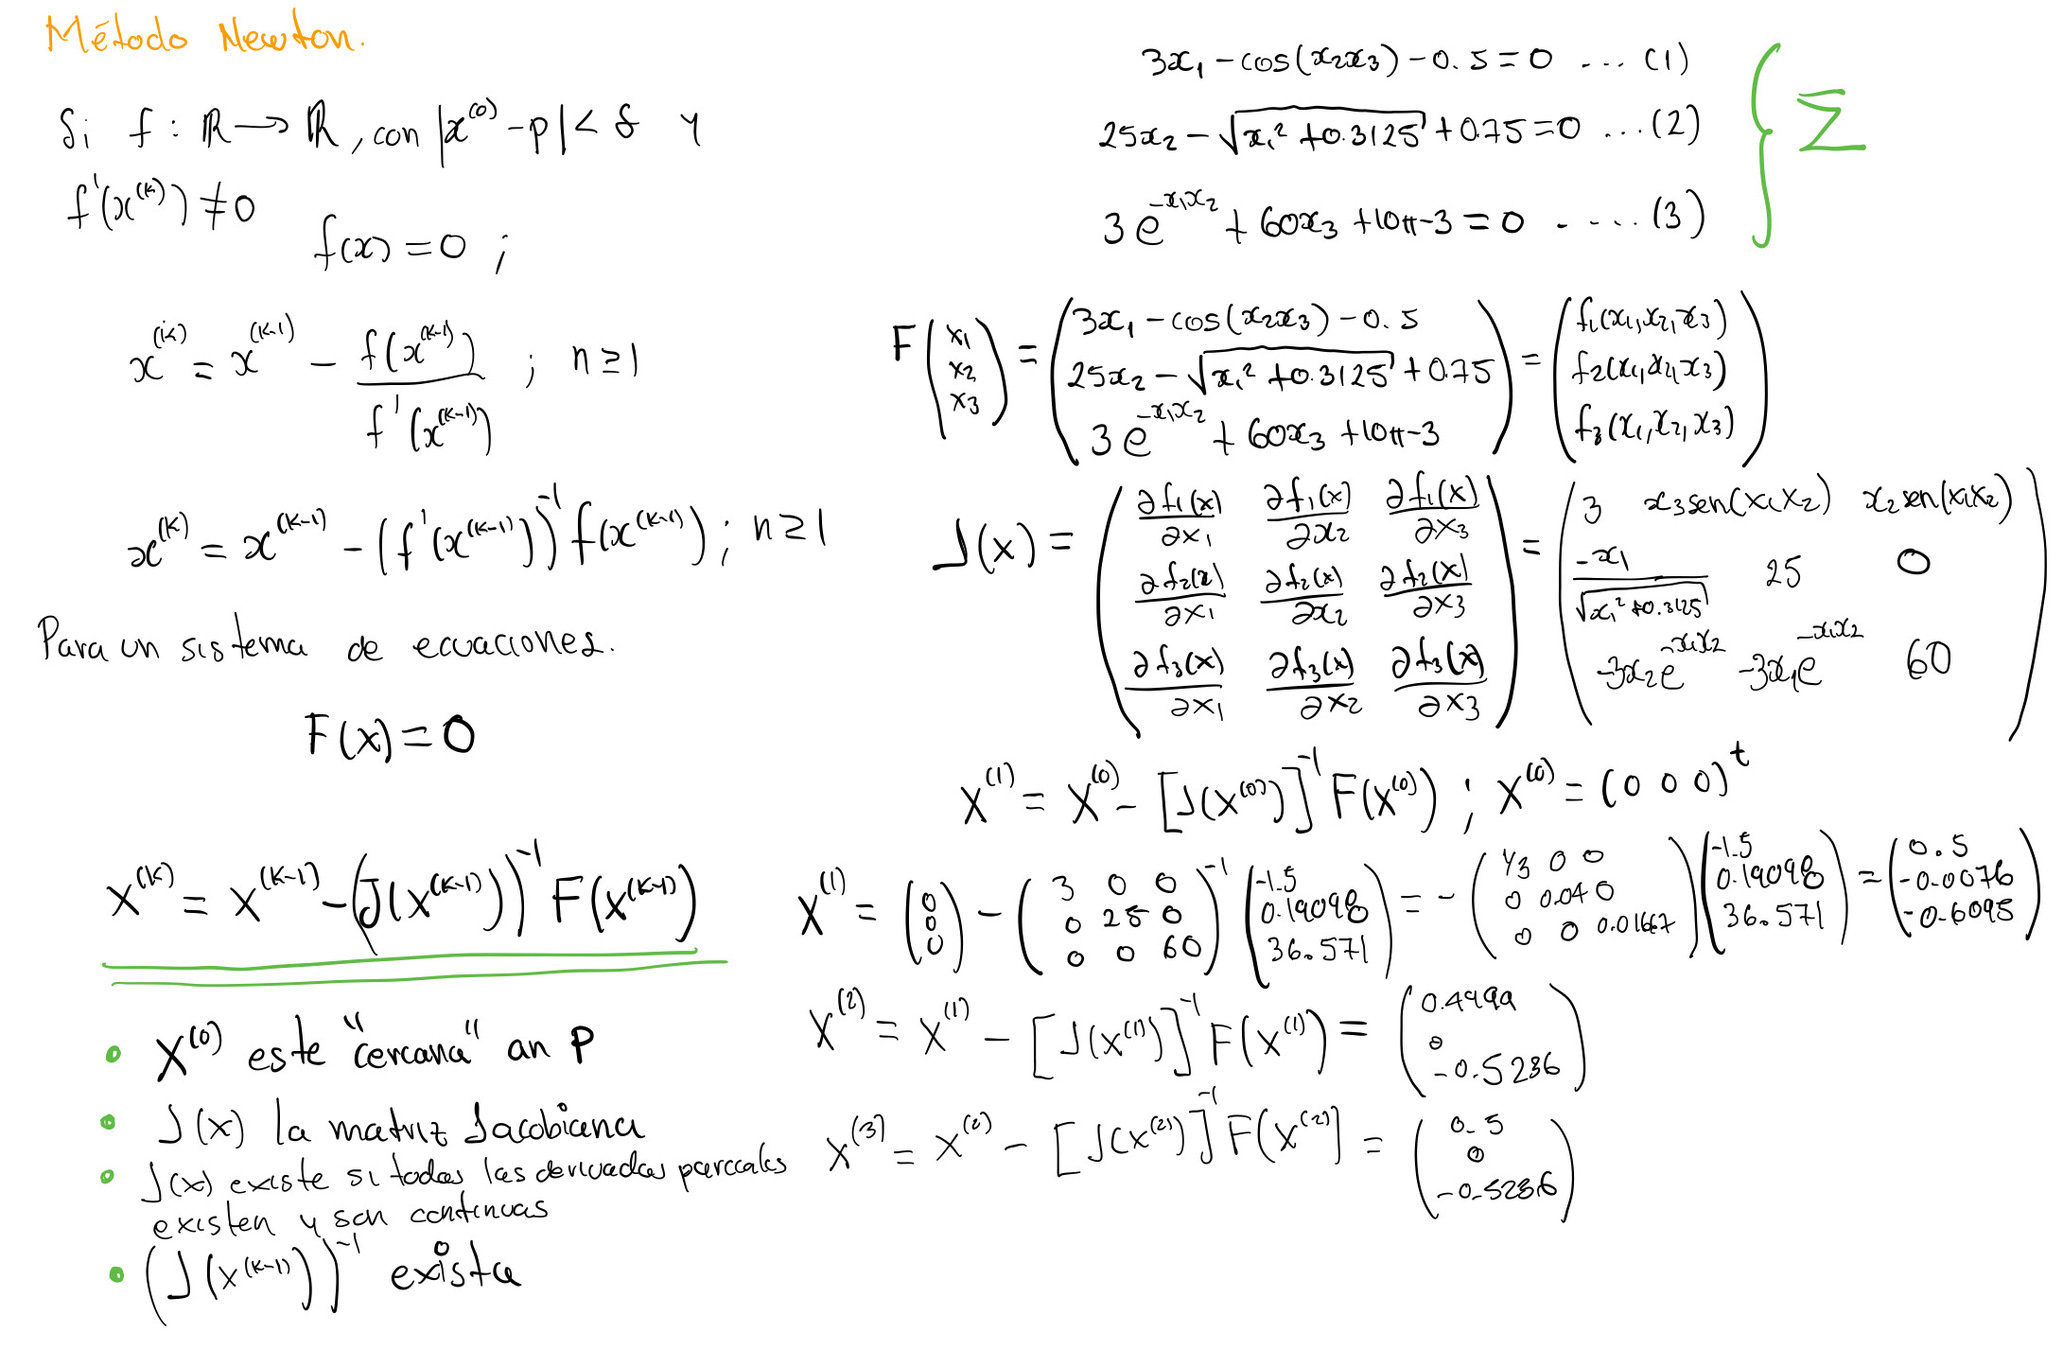 Método Newton.
Si f : ℝ → ℝ, con |x^(0) - p| < δ y
f'(x^(k)) ≠ 0
f(x) = 0 ;
x^(k) = x^(k-1) - f(x^(k-1)) / f'(x^(k-1)) ; n ≥ 1
x^(k) = x^(k-1) - (f'(x^(k-1)))^-1 f(x^(k-1)) ; n ≥ 1
Para un sistema de ecuaciones.
F(x) = 0
X^(k) = X^(k-1) - (J(x^(k-1)))^-1 F(x^(k-1))
• X^(0) este "cercana" an P
• J(x) la matriz Jacobiana
• J(x) existe si todas las derivadas parciales
existen y son continuas
• (J(x^(k-1)))^-1 exista
3x1 - cos(x2x3) - 0.5 = 0 ... (1)
25x2 - √(x1² + 0.3125) + 0.75 = 0 ... (2)
3e^(-x1x2) + 60x3 + 10π - 3 = 0 ..... (3)
Σ
F (x1 x2 x3) = (3x1 - cos(x2x3) - 0.5 ; 25x2 - √(x1² + 0.3125) + 0.75 ; 3e^(-x1x2) + 60x3 + 10π - 3) = (f1(x1,x2,x3) ; f2(x1,x2,x3) ; f3(x1,x2,x3))
J(x) = (∂f1(x)/∂x1 ∂f1(x)/∂x2 ∂f1(x)/∂x3 ; ∂f2(x)/∂x1 ∂f2(x)/∂x2 ∂f2(x)/∂x3 ; ∂f3(x)/∂x1 ∂f3(x)/∂x2 ∂f3(x)/∂x3) = (3 x3sen(x1x2) x2sen(x1x2) ; -x1/√(x1² + 0.3125) 25 0 ; -3x2e^(-x1x2) -3x1e^(-x1x2) 60)
X^(1) = X^(0) - [J(X^(0))]^-1 F(X^(0)) ; X^(0) = (0 0 0)^t
X^(1) = (0 ; 0 ; 0) - (3 0 0 ; 0 25 0 ; 0 0 60)^-1 (-1.5 ; 0.19098 ; 36.571) = - (1/3 0 0 ; 0 0.04 0 ; 0 0 0.01667) (-1.5 ; 0.19098 ; 36.571) = (0.5 ; -0.0076 ; -0.6095)
X^(2) = X^(1) - [J(X^(1))]^-1 F(X^(1)) = (0.4999 ; 0 ; -0.5236)
X^(3) = X^(2) - [J(X^(2))]^-1 F(X^(2)] = (0.5 ; 0 ; -0.5236)